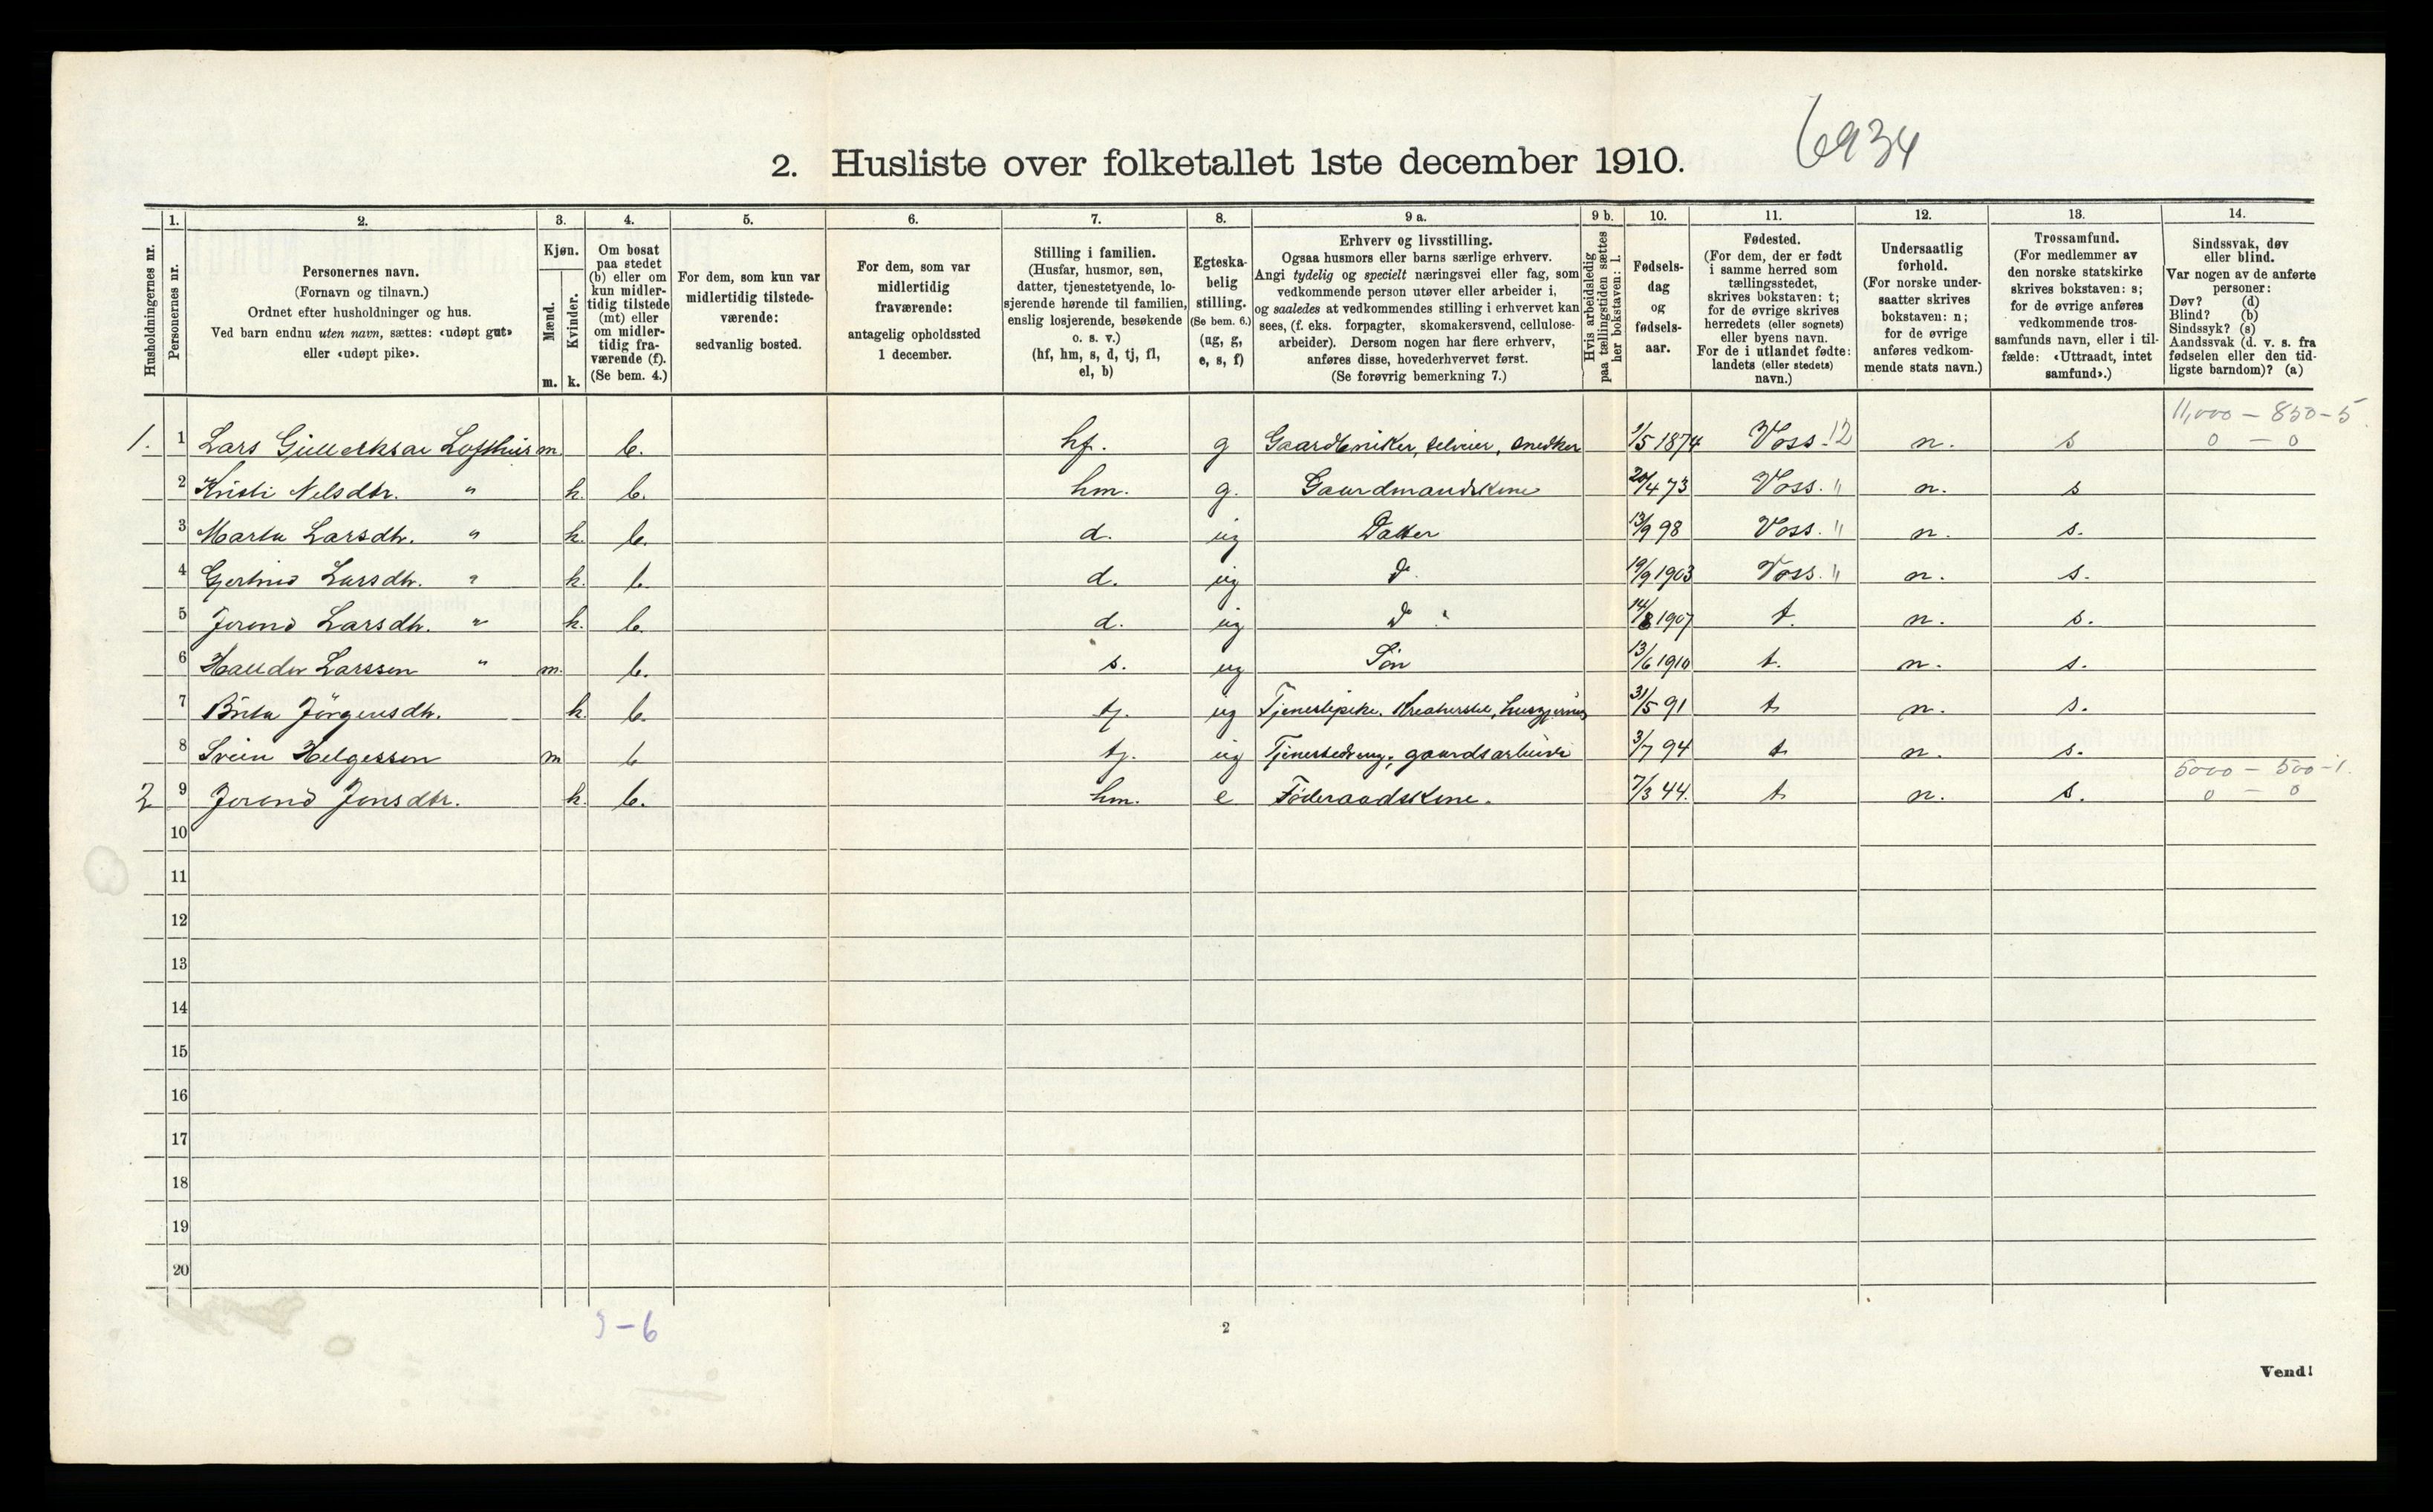 6934
2. Husliste over folketallet 1ste december 1910.
Husholdningernes nr.
1.
Personernes nr.
2.
Personernes navn.
(Fornavn og tilnavn.)
Ordnet efter husholdninger og hus.
Ved barn endnu uten navn, sættes: «udøpt gut»
eller «udøpt pike».
3.
Kjøn.
Mænd.
Kvinder.
m. k.
4.
Om bosat
paa stedet
(b) eller om
kun midler-
tidig tilstede
(mt) eller
om midler-
tidig fra-
værende (f).
(Se bem. 4.)
5.
For dem, som kun var
midlertidig tilstede-
værende:
sedvanlig bosted.
6.
For dem, som var
midlertidig
fraværende:
antagelig opholdssted
1 december.
7.
Stilling i familien.
(Husfar, husmor, søn,
datter, tjenestetyende, lo-
sjerende hørende til familien,
enslig losjerende, besøkende
o. s. v.)
(hf, hm, s, d, tj, fl,
el, b)
8.
Egteska-
belig
stilling.
(Se bem. 6.)
(ug, g,
e, s, f)
9 a.
Erhverv og livsstilling.
Ogsaa husmors eller barns særlige erhverv.
Angi tydelig og specielt næringsvei eller fag, som
vedkommende person utøver eller arbeider i,
og saaledes at vedkommendes stilling i erhvervet kan
sees, (f. eks. forpagter, skomakersvend, cellulose-
arbeider). Dersom nogen har flere erhverv,
anføres disse, hovederhvervet først.
(Se forøvrig bemerkning 7.)
9 b.
Hvis arbeidsledig
paa tællingstiden sættes
her bokstaven: l.
10.
Fødsels-
dag
og
fødsels-
aar.
11.
Fødested.
(For dem, der er født
i samme herred som
tællingsstedet,
skrives bokstaven: t;
for de øvrige skrives
herredets (eller sognets)
eller byens navn.
For de i utlandet fødte:
landets (eller stedets)
navn.)
12.
Undersaatlig
forhold.
(For norske under-
saatter skrives
bokstaven: n;
for de øvrige
anføres vedkom-
mende stats navn.)
13.
Trossamfund.
(For medlemmer av
den norske statskirke
skrives bokstaven: s;
for de øvrige anføres
vedkommende tros-
samfunds navn, eller i til-
fælde: «Uttraadt, intet
samfund».)
14.
Sindssvak, døv
eller blind.
Var nogen av de anførte
personer:
Døv? (d)
Blind? (b)
Sindssyk? (s)
Aandssvak (d. v. s. fra
fødselen eller den tid-
ligste barndom)? (a)
11,000 - 850-5
1. 1 Lars Lofthus m. b. hf. g Gaardbruker, selveier, snedker 1/5 1874 Voss 12 n. s 0 - 0
2 Kristi Nelsdtr. " k. b. hm. g. Gaardmandskone 20/4 73 Voss. " n. s
3 Marta Larsdtr. " k. b. d. ug Datter 13/9 98 Voss. " n. s.
4 Gjertrud Larsdtr. " k. b. d. ug D. 19/9 1903 Voss. " n. s.
5 Jorond Larsdtr. " k. b. d. ug D " 14/8 1907 t. n. s.
6 Haldor Larssen " m. b. s. ug Søn 13/6 1910 t. n. s.
7 Brita Jørgensdtr. k. b. tj. ug Tjenestepike. Kreaturstel, husgjerning 31/5 91 t n. s.
8 Svein Helgessen m b tj. ug Tjenestedreng, gaardsarbeide 3/7 94 t n. s.
5000 - 500-1.
2 9 Jorond Jonsdtr. k. b. hm. e Føderaadskone. 7/3 44. t n. s. 0 - 0
10
11
12
13
14
15
16
17
18
19
20
3-6
2
Vend!